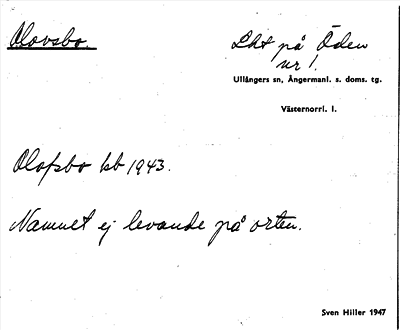 Olovsbo.
Lht på Öden
nr 1.
Ullångers sn, Ångermanl. s. doms. tg.
Västernorrl. l.
Olofsbo kb 1943.
Namnet ej levande på orten.
Sven Hiller 1947